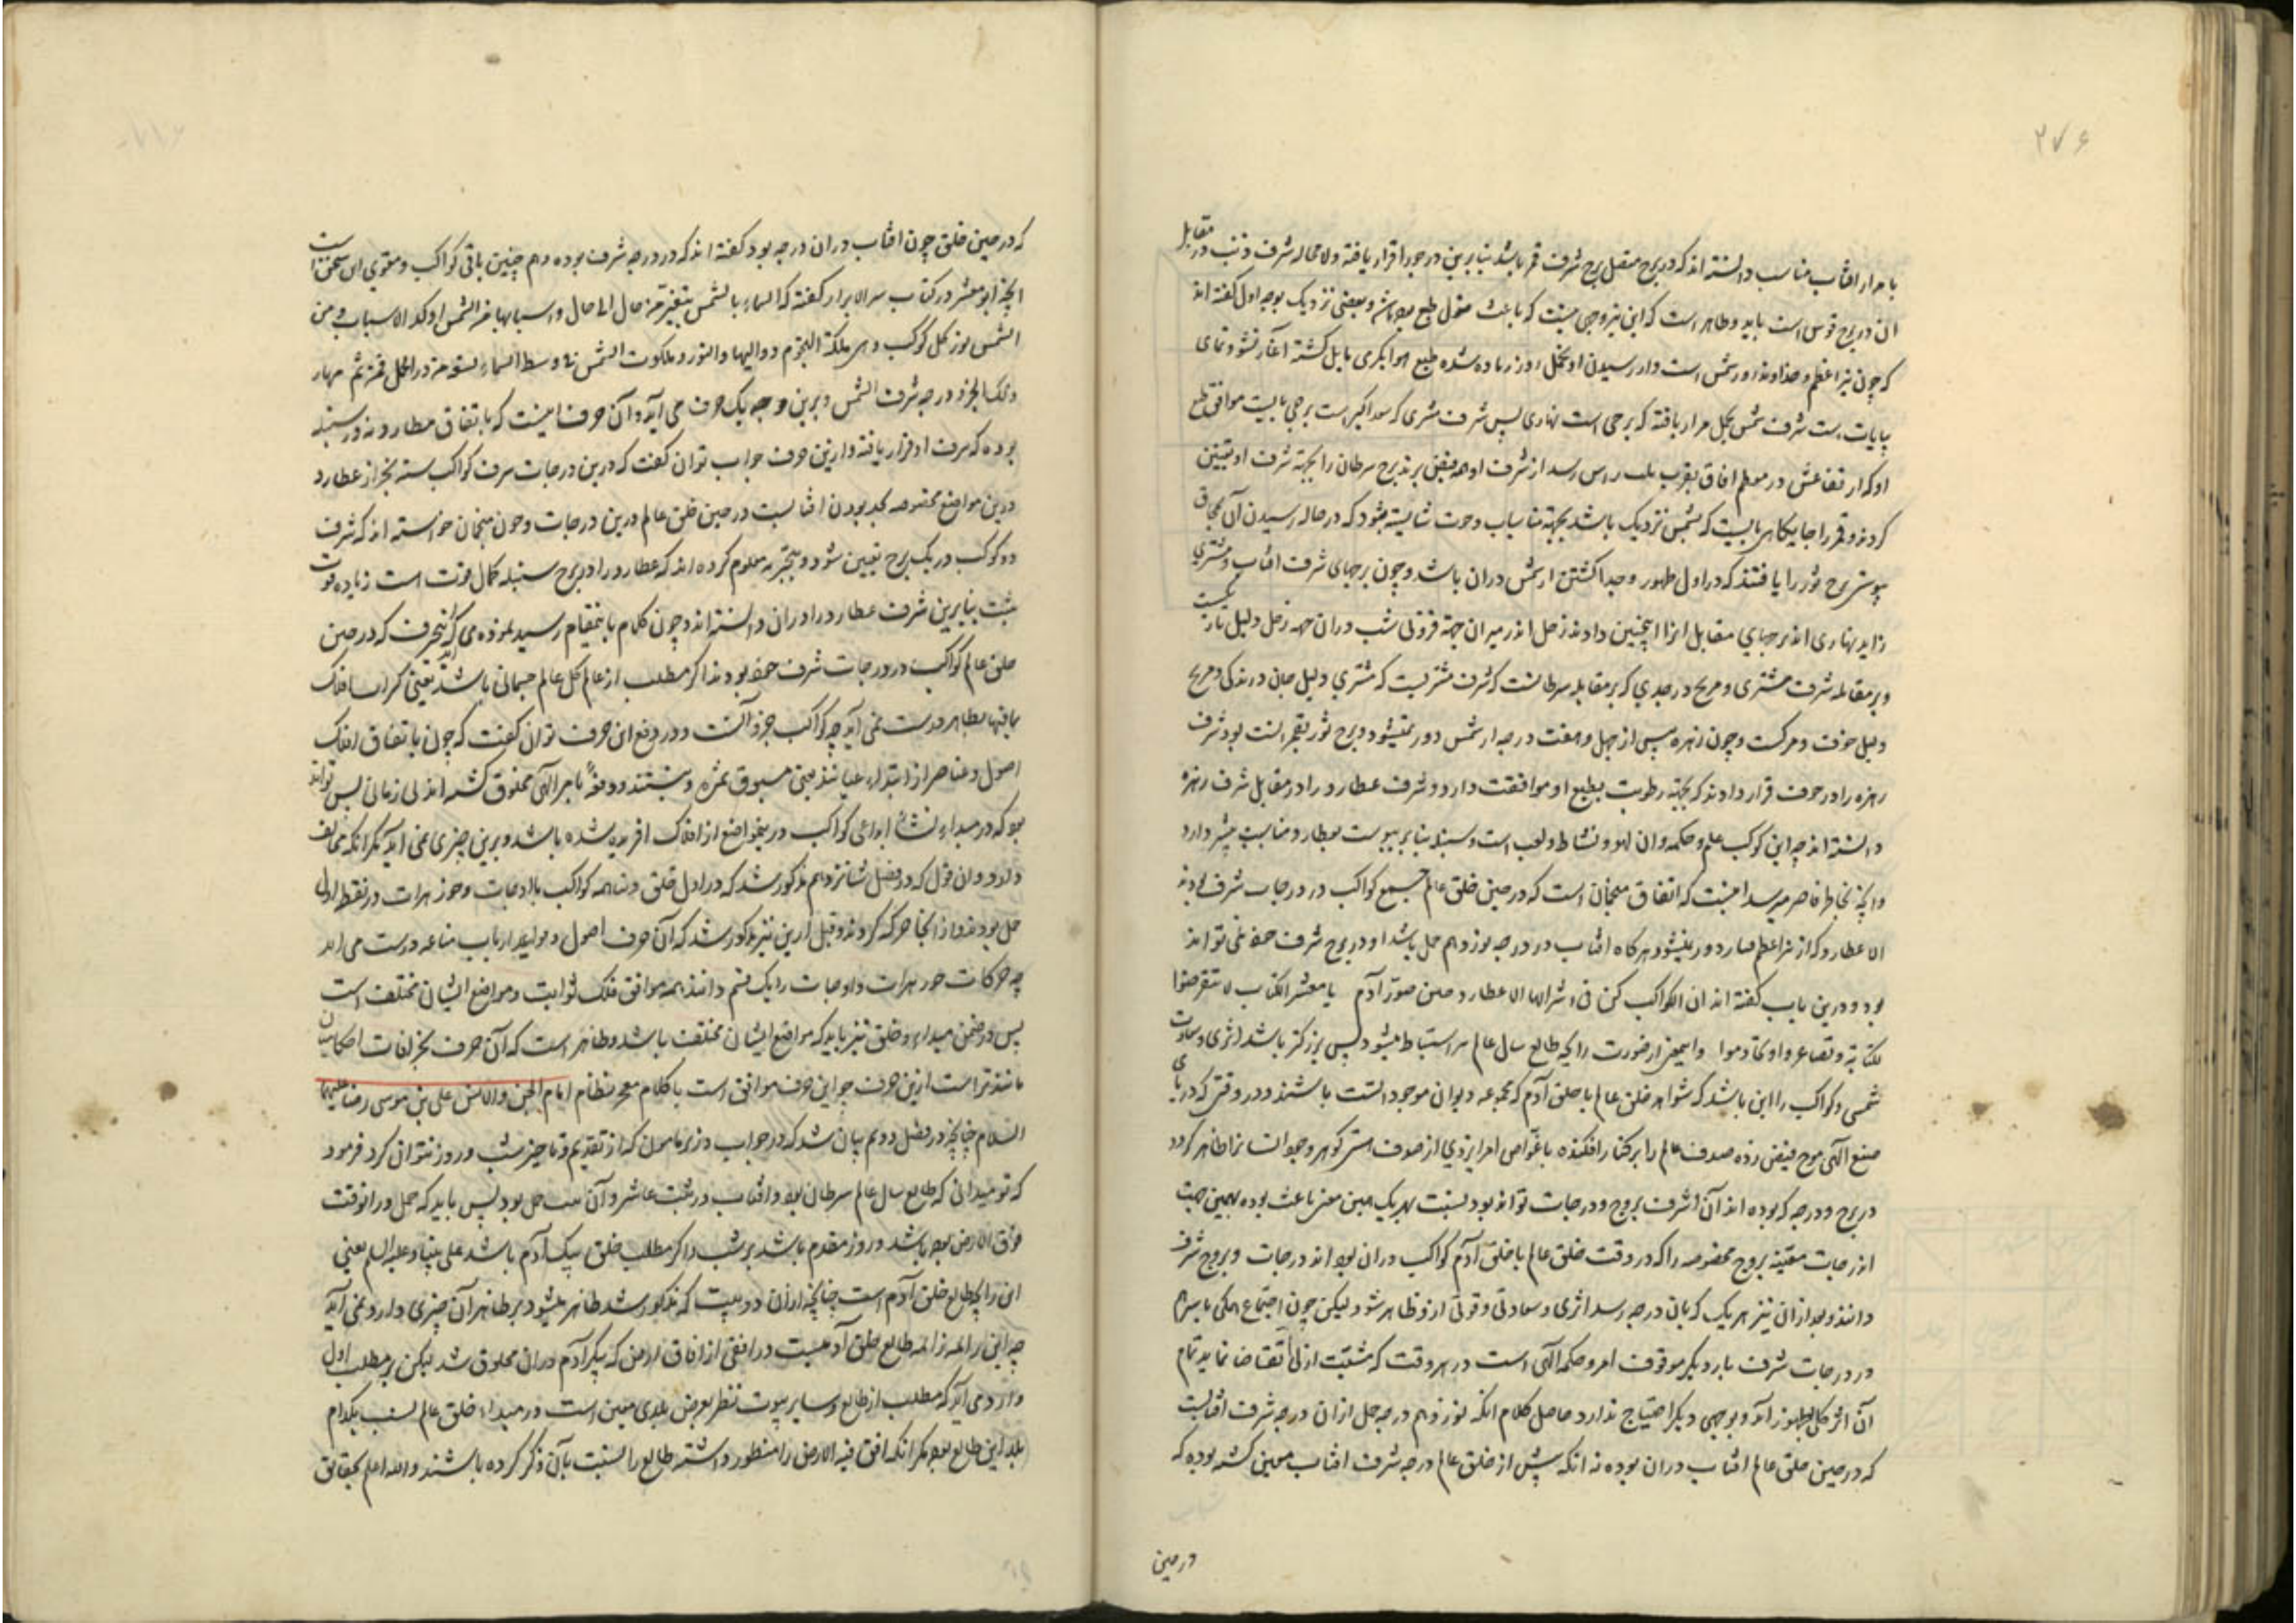 ۲۷۶
با مدار افتاب مناسب دانسته اند که در برج متصل برج شرف قمر باشد بنابرین در جوزا قرار یافته ولا محاله شرف ذنب در مقابل
ان در برج قوس است باید و ظاهر است که این نیز وجهی نیست که باعث میل طبع بوده باشد و بعضی نزدیک بوجه اول گفته اند
که چون نیر اعظم و خداوند روز شمس است و از رسیدن او بحمل روز زیاده شده طبع هوا بگرمی مایل گشته آغاز نشو و نمای
نباتات است شرف شمس بحمل قرار یافته که برجی است نهاری پس شرف مشتری که سعد اکبر است برجی بایست موافق طبع
او که ارتفاعش در معظم افاق بقرب سمت راس رسد از شرف او همه فیض برند برج سرطان را بجهته شرف او تعیین
کردند و قمر را جایگاهی بایست که بشمس نزدیک باشد بجهته مناسبات وحوت شایسته نبود که در حاله رسیدن آن بمحاق
پیوستی برج ثور را یافتند که در اول ظهور و جدا گشتن از شمس دران باشد و چون برجهای شرف افتاب و مشتری
زاید نهاری اند برجهای مقابل انرا اینچنین دادند زحل اندر میزان جهة فزونی شب دران چه زحل دلیل تاریکیست
و بر مقابله شرف مشتری و مریخ در جدی که بر مقابله سرطانست که شرف مشتریست که مشتری دلیل جان و زندگی و مریخ
دلیل خوف و مرگست و چون زهره پس از چهل و هفت درجه از شمس دور نمیشود و برج ثور بقمر انست بود شرف
زهره را در حوت قرار دادند که بجهته رطوبت بطبع او موافقت دارد و شرف عطارد را در مقابل شرف زهره
دانسته اند چه این کوکب علم و حکمه وان لهو و نشاط و لعب است و سنبله بنابر یبوست بعطارد مناسبت بیشتر دارد
و انچه بخاطر قاصر میرسد اینست که اتفاق منجمان است که در حین خلق عالم جمیع کواکب در درجات شرف بودند
الا عطارد که از نیر اعظم بسیار دور نمیشود هرگاه افتاب در درجه نوزدهم حمل باشد او در برج شرف خود نمی تواند
بود و درین باب گفته اند ان الکواکب کن فی اشرافها الا عطارد حین صور آدم یا معشر الکتاب لا تتعرضوا
لکتابة وتصاعروا وتقادموا و ایضا ازین صورت زایچه طالع سال عالم نیز استنباط میشود پس بزرگتر باشد اثری و سعادت
شمسی و کواکب را این باشد که شواهد خلق عالم یا خلق آدم که مجموعه دیوان موجوداتست باشند و در وقتی که دریای
صنع الهی موج فیض زده صدف عالم را بر کنار افکنده با غواص امر ایزدی از صدف استر گوهر وجود انسانرا ظاهر کرد
در برج و درجه که بوده اند آن اشرف بروج و درجات تواند بود نسبت بهر یک همین معنی باعث بوده بهمین جهت
از درجات معینه بروج مخصوصه را که در وقت خلق عالم یا خلق آدم کواکب دران بوده اند درجات و بروج شرف
دانند و بعد ازان نیز هر یک که بان درجه رسد اثری و سعادتی و قوتی ازو ظاهر شود لیکن چون اجتماع همگی باسرها
در درجات شرف بار دیگر موقوف امر و حکمه الهی است در هر وقت که مشیت ازلی اقتضا نماید تمام
آن اثر کل بظهور آید و بوجهی دیگر احتیاج ندارد حاصل کلام انکه نوزدهم درجه حمل ازان درجه شرف افتابست
که در حین خلق عالم افتاب دران بوده نه انکه پیش از خلق عالم درجه شرف افتاب معین گشته بوده که
در حین
که در حین خلق چون افتاب دران درجه بود گفته اند که در درجه شرف بوده و هم چنین باقی کواکب و مقوی این سخن است
انچه ابو معشر در کتاب سر الاسرار گفته که السماء بالشمس یتغیر من حال الی حال و اسبابها من الشمس اوکد الاسباب و من
الشمس نور کل کوکب وهی ملکة النجوم و والیها و النور و ملکوت الشمس فی وسط السماء
ذلک الجزء درجه شرف الشمس و برین وجه یک حرف می آید و آن حرف اینست که باتفاق عطارد نه در سنبله
بوده که شرف او قرار یافته و ازین حرف جواب توان گفت که درین درجات شرف کواکب سته بغیر از عطارد
درین مواضع مخصوصه بجهة بودن افتابست در حین خلق عالم درین درجات و چون منجمان خواسته اند که شرف
دو کوکب در یک برج تعیین شود و بتجربه معلوم کرده اند که عطارد را در برج سنبله کمال قوت است زیاده قوت
بیت بنابرین شرف عطارد را دران دانسته اند و چون کلام باینمقام رسید نموده می آید که اینحرف که در حین
خلق عالم کواکب در درجات شرف خود بودند اگر مطلب از عالم کل عالم جسمانی باشد یعنی کرات افلاک
بمافیها بظاهر درست نمی آید چه کواکب جزو آنست و در دفع این حرف توان گفت که چون باتفاق افلاک
اصول و عناصر از ابتداء عیانند یعنی مسبوق بمثره و نیستند و دفعةً بامر الهی مخلوق گشته اند بی زمانی پس تواند
بود که در مبداء نشأة ابداعی کواکب درین مواضع از افلاک افریده شده باشد و برین چیزی نمی آید مگر انکه مخالف
دارد وان قول که در فصل شانزدهم مذکور شد که در اول خلق دنیا همه کواکب با اوجات و جوزهرات در نقطه اول
حمل بودند و از انجا حرکه کردند و قبل ازین نیز مذکور شد که آن حرف اصول و مواعید ارباب صناعه درست می اید
چه حرکات جوزهرات و اوجات را یک قسم دانند همه موافق فلک ثوابت و مواضع ایشان مختلف است
پس در ضمن مبداء و خلق نیز باید که مواقع ایشان مختلف باشد و ظاهر است که آن حرف بخرافات احکامیان
مانندتر است ازین حرف چه این حرف موافق است با کلام معجز نظام امام الجن والانس علی بن موسی رضا علیهما
السلام چنانچه در فصل دویم بیان شد که در جواب وزیر مامون که از تقدیم و تاخیر شب و روز نتوان کرد فرمود
که تو میدانی که طالع سال عالم سرطان بود و افتاب در بیت عاشر و آن بیت حمل بود پس باید که حمل در انوقت
فوق الارض بوده باشد و روز مقدم باشد بر شب و اگر مطلب خلق پیکر آدم باشد علی نبینا و علیه السلم یعنی
این زایچه طالع خلق آدم است چنانچه ازان دو بیت که مذکور شد ظاهر میشود بر ظاهر آن چیزی وارد نمی آید
چه این زایچه زایچه طالع خلق آدمست در افقی از افاق ارض که پیکر آدم دران مخلوق شد لیکن بر مطلب اول
وارد می آید که مطلب از طالع و سایر بیوت نظر بعرض بلدی معین است در مبداء خلق عالم نسبت بکدام
بلد این طالع بود مگر انکه افق قبة الارض را منظور داشته طالع را نسبت بآن ذکر کرده باشند و الله اعلم بحقایق